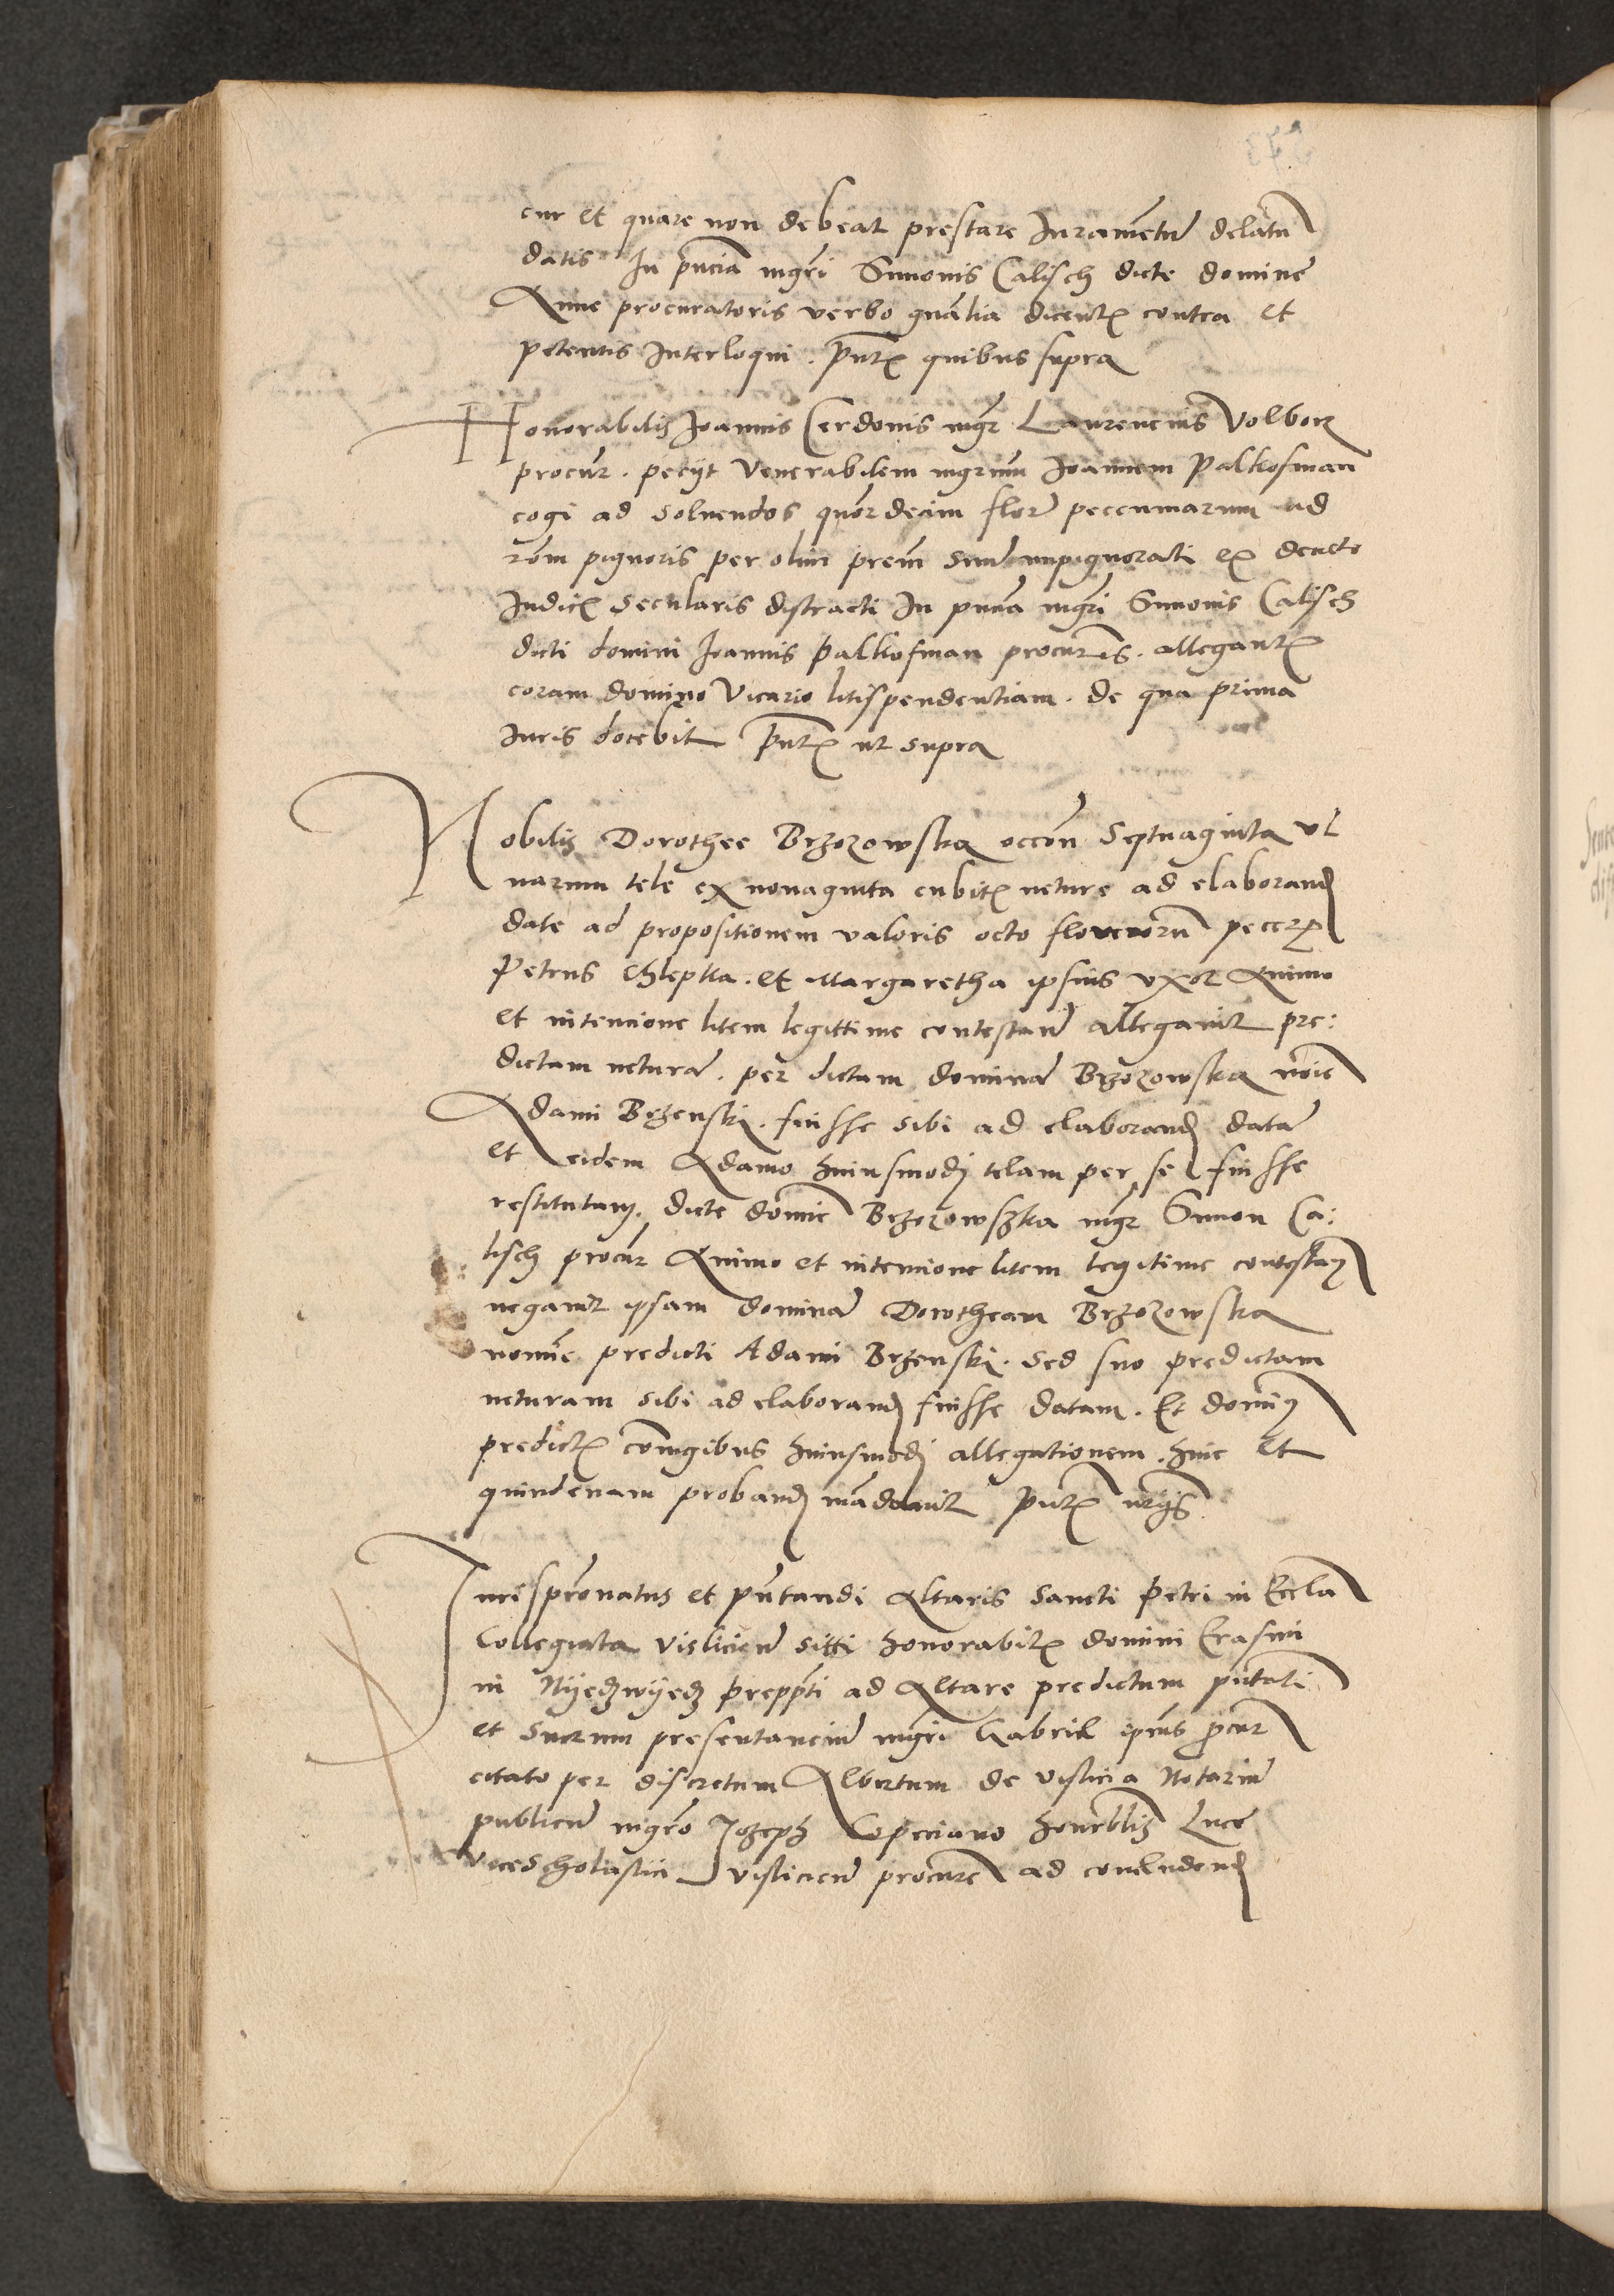 cur et quare non debeat prestare Juramentu delatu
datis In pncia mgri Simonis Calisch dicte domine
Anne procuratoris verbo gnalia dicent contra et
petentis Interloqui . pntr quibus supra
Honorabilis Joannis Cerdonis mgr Laurencius Volborz
procur . pecyt venerabilem mgrum Joannem Palkofman
cogi ad solvendos quordecim flor peccuniarum ad
rom pignoris per olim prem sui impignorati ex
Judicis secularis distracti In pncia mgri Simonis Calisch
dicti domini Joannis Palkofman procuris . allegantis
coram domino Vicario litispendentiam . de qua prima
Juris docebit pntr ut supra
Nobilis Dorothee Brzozowska occon Septuaginta vl
narum tele ex nonaginta cubit neture ad elaborand
date ad propositionem valoris octo florenoru peccr
Petrus Chlepka . et Margaretha ipsius uxor Animo
et intencione litem legittime contestan allegavit pre:
dictam netura . per dictam domina Brzozowska noie
Adami Brzenski . fuisse sibi ad elaborand data
et eidem Adamo huiusmodi telam per se fuisse
restitutam . dicte domine Brzozowszka mgr Simon Ca:
lisch procur Animo et intencione litem legitime contestan
negavit ipsam domina Dorotheam Brzozowska
nomine predicti Adami Brzenski . sed suo predictam
neturam sibi ad elaborand fuisse datam . Et dominus
predict coniugibus huiusmodi allegationem . hinc et
quindenam proband madavit pntr
Juris pronatus et pntandi Altaris Sancti Petri in Eccla
Collegiata Vislicien sitti honorabilis domini Erasmi
in Nyedzwyedz preppti ad Altare predictum pntati
et Suorum presentanciu mgri Gabriel ipius pcur
citato per discretum Albertum de Vislicia Notariu
publicu mgro Jozeph Copeciano honrblis Luce
vicescholastici Vislicien procure ad concludend